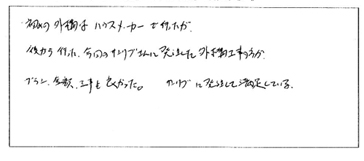 初めの外構は ハウスメーカーで行ったが、
後から行った、今回のオンリブさんに発注した外構工事の方が
プラン、金額、工事も良かった。 オンリブに発注して満足している。